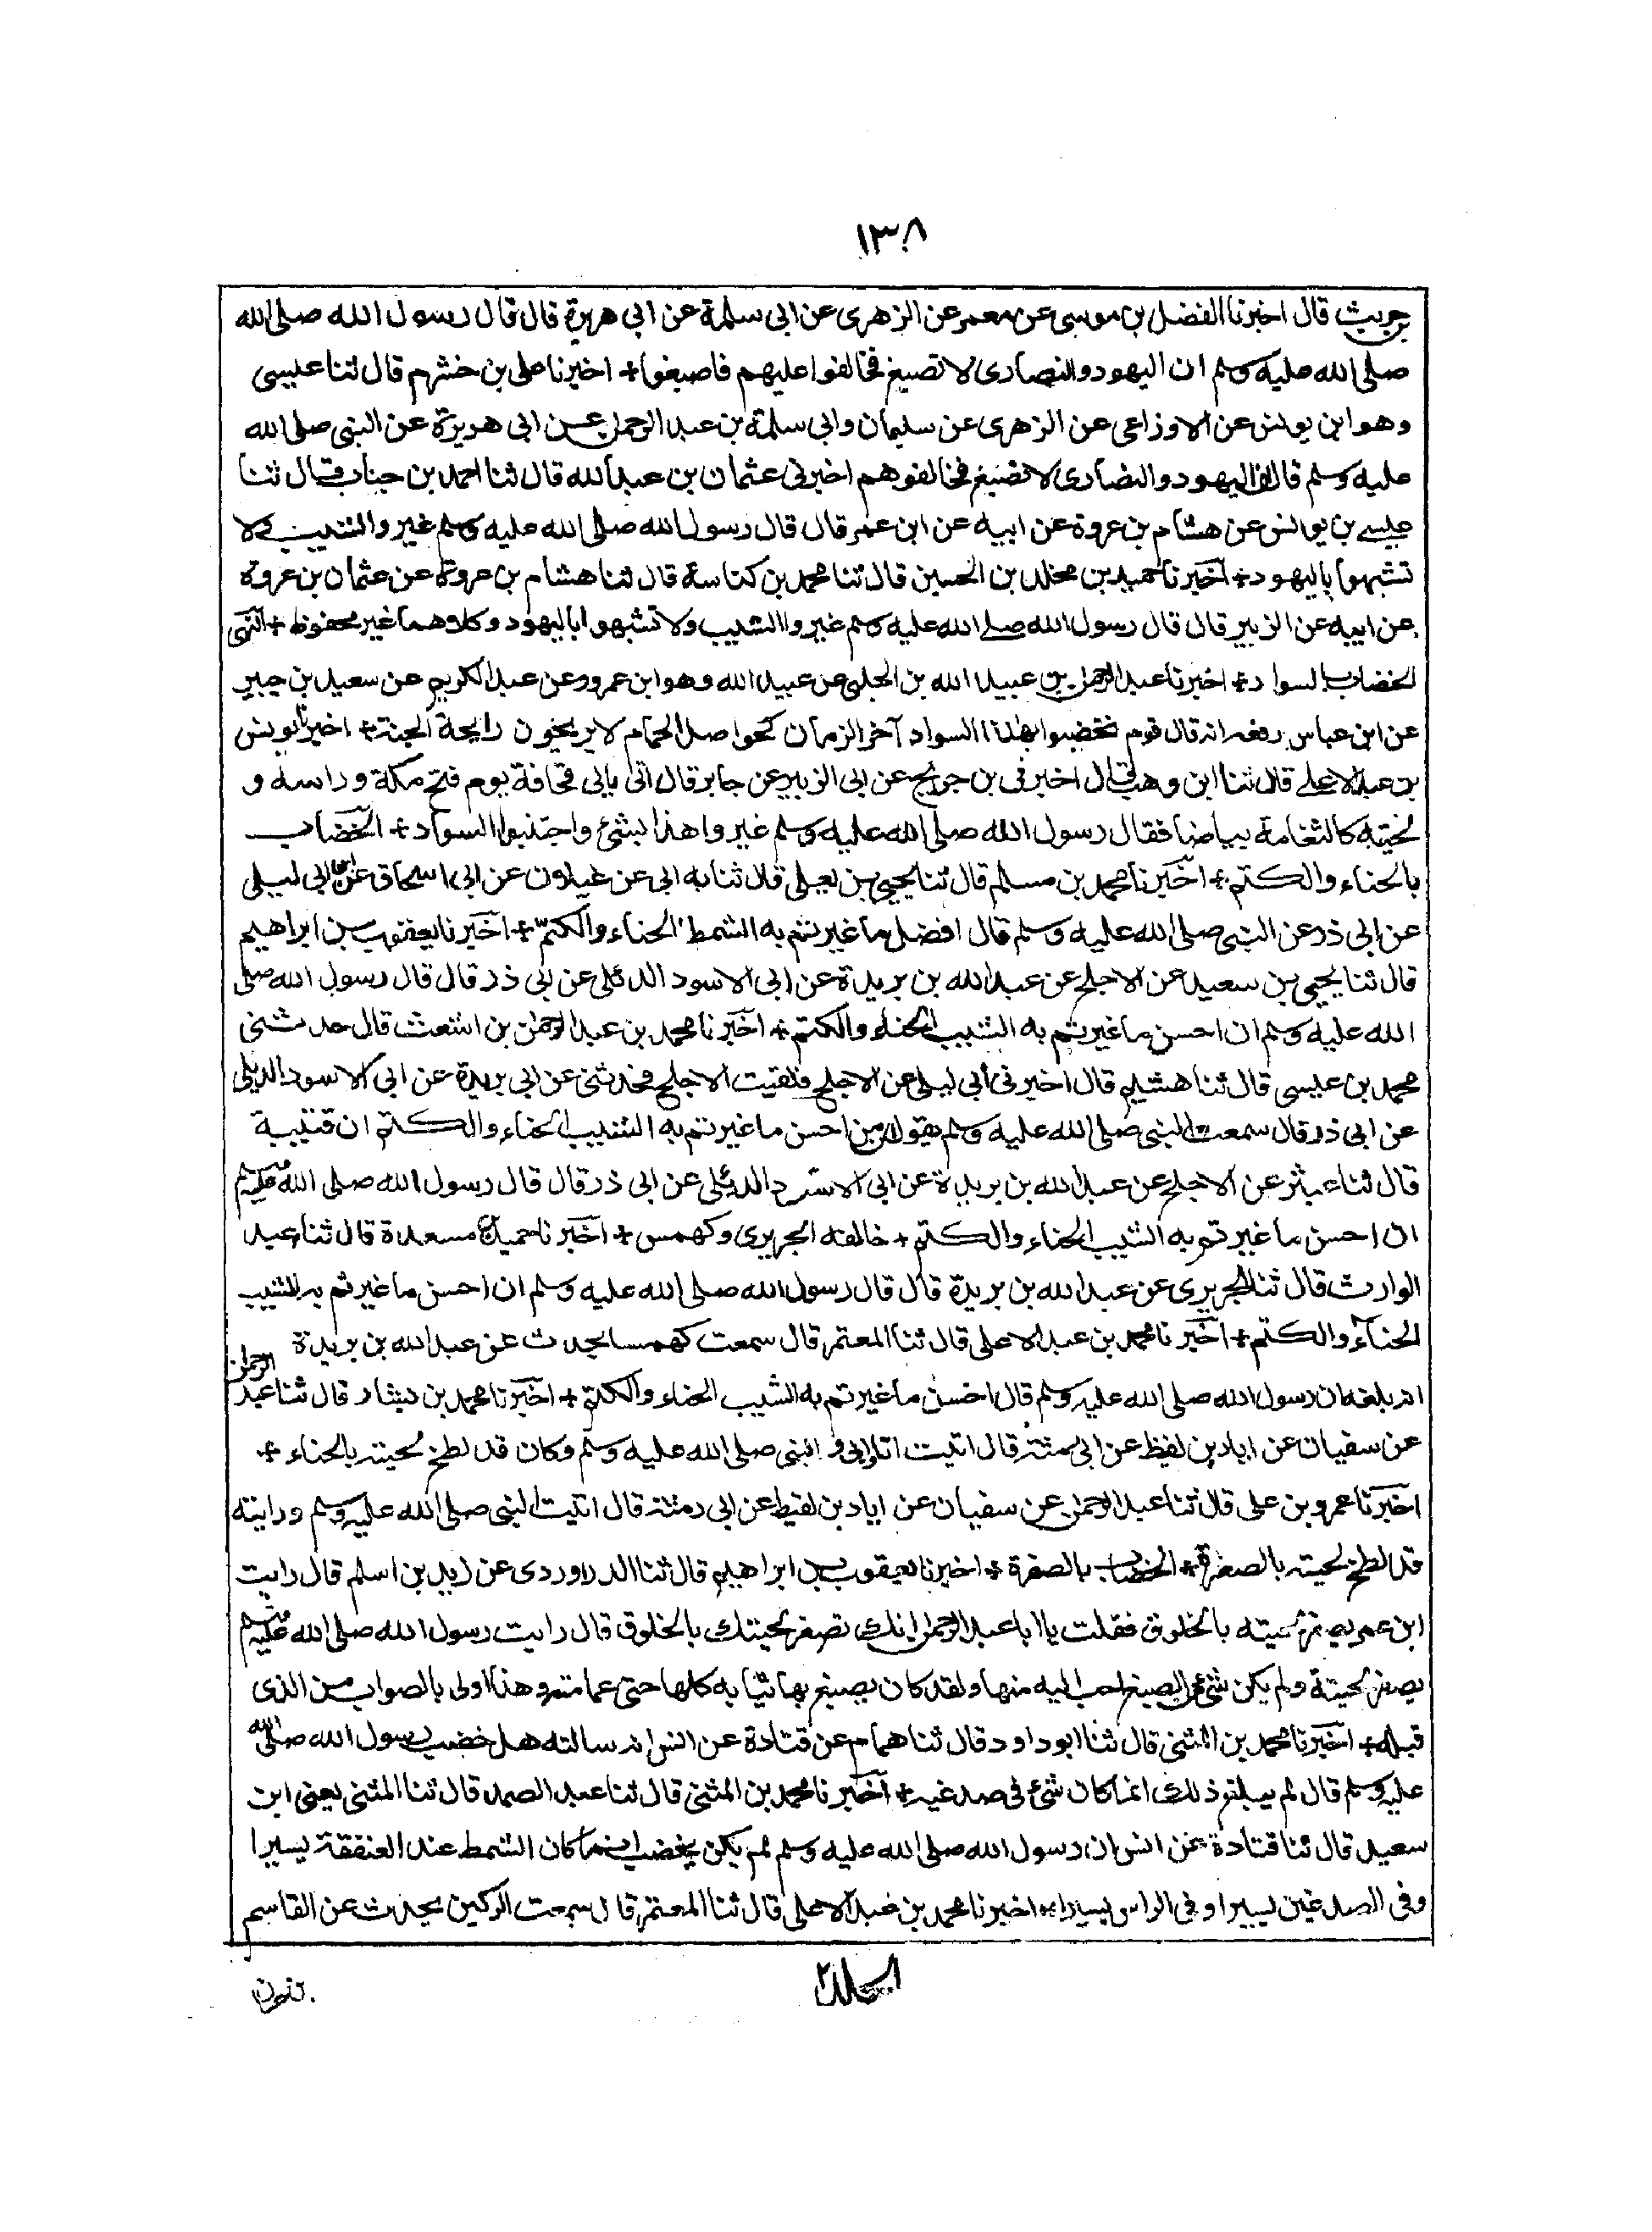 ١٣٨
حريث قال اخبرنا الفضل بن موسى عن معمر عن الزهرى عن ابى سلمة عن ابى هريرة قال قال رسول الله صلى الله
صلى الله عليه وسلم ان اليهود والنصارى لا تصبغ فخالفوا عليهم فاصبغوا + اخبرنا على بن خشرم قال ثنا عيسى
وهو ابن يونس عن الاوزاعى عن الزهرى عن سليمان وابى سلمة بن عبد الرحمن عن ابى هريرة عن النبى صلى الله
عليه وسلم قال ان اليهود والنصارى لا تصبغ فخالفوهم اخبرنى عثمان بن عبد الله قال ثنا احمد بن جناب قال ثنا
عيسى بن يونس عن هشام بن عروة عن ابيه عن ابن عمر قال قال رسول الله صلى الله عليه وسلم غيروا الشيب ولا
تشبهوا باليهود + اخبرنا حميد بن مخلد بن الحسين قال ثنا محمد بن كناسة قال ثنا هشام بن عروة عن عثمان بن عروة
عن ابيه عن الزبير قال قال رسول الله صلى الله عليه وسلم غيروا الشيب ولا تشبهوا باليهود وكلاهما غير محفوظ + النهى
الخضاب بالسواد + اخبرنا عبد الرحمن بن عبيد الله بن الحلبى عن عبيد الله وهو ابن عمرو عن عبد الكريم عن سعيد بن جبير
عن ابن عباس رفعه انه قال قوم يخضبوا بهذا السواد آخر الزمان كحواصل الحمام لا يريحون رايحة الجنة + اخبرنا يونس
بن عبد الاعلى قال ثنا ابن وهب قال اخبرنى بن جريج عن ابى الزبير عن جابر قال اتى بابى قحافة يوم فتح مكة وراسه و
لحيته كالثغامة بياضا فقال رسول الله صلى الله عليه وسلم غيروا هذا بشئ واجتنبوا السواد + الخضاب
بالحناء والكتم + اخبرنا محمد بن مسلم قال ثنا يحيى بن يعلى قال ثنا به ابى عن غيلان عن ابى اسحاق عن ابن ابى ليلى
عن ابى ذر عن النبى صلى الله عليه وسلم قال افضل ما غيرتم به الشمط الحناء والكتم + اخبرنا يعقوب بن ابراهيم
قال ثنا يحيى بن سعيد عن الاجلح عن عبد الله بن بريدة عن ابى الاسود الدئلى عن ابى ذر قال قال رسول الله صلى
الله عليه وسلم ان احسن ما غيرتم به الشيب الحناء والكتم + اخبرنا محمد بن عبد الرحمن بن اشعث قال حدثنى
محمد بن عيسى قال ثنا هشيم قال اخبرنى ابى ليلى عن الاجلح فلقيت الاجلح فحدثنى عن ابى بريدة عن ابى الاسود الديلى
عن ابى ذر قال سمعت النبى صلى الله عليه وسلم يقول ان من احسن ما غيرتم به الشيب الحناء والكتم ان قتيبة
قال ثنا عبثر عن الاجلح عن عبد الله بن بريدة عن ابى الاسود الدئلى عن ابى ذر قال قال رسول الله صلى الله عليه وسلم
ان احسن ما غيرتم به الشيب الحناء والكتم + خالفه الجريرى وكهمس + اخبرنا حميد بن مسعدة قال ثنا عبد
الوارث قال ثنا الجريرى عن عبد الله بن بريدة قال قال رسول الله صلى الله عليه وسلم ان احسن ما غيرتم به الشيب
الحناء والكتم + اخبرنا محمد بن عبد الاعلى قال ثنا المعتمر قال سمعت كهمسا يحدث عن عبد الله بن بريدة
انه بلغه ان رسول الله صلى الله عليه وسلم قال احسن ما غيرتم به الشيب الحناء والكتم + اخبرنا محمد بن بشار قال ثنا عبد الرحمن
عن سفيان عن اياد بن لقيط عن ابى رمثة قال اتيت انا وابى النبى صلى الله عليه وسلم وكان قد لطخ لحيته بالحناء +
اخبرنا عمرو بن على قال ثنا عبد الرحمن عن سفيان عن اياد بن لقيط عن ابى رمثة قال اتيت النبى صلى الله عليه وسلم ورايته
قد لطخ لحيته بالصفرة + الخضاب بالصفرة + اخبرنا يعقوب بن ابراهيم قال ثنا الدراوردى عن زيد بن اسلم قال رايت
ابن عمر يصفر لحيته بالخلوق فقلت يا ابا عبد الرحمن انك تصفر لحيتك بالخلوق قال رايت رسول الله صلى الله عليه وسلم
يصفر لحيته ولم يكن شئ من الصبغ احب اليه منها ولقد كان يصبغ بها ثيابه كلها حتى عمامته وهذا اولى بالصواب من الذى
قبله + اخبرنا محمد بن المثنى قال ثنا ابو داود قال ثنا همام عن قتادة عن انس انه سالته هل خضب رسول الله صلى الله
عليه وسلم قال لم يبلغ ذلك انما كان شئ فى صدغيه + اخبرنا محمد بن المثنى قال ثنا عبد الصمد قال ثنا المثنى يعنى ابن
سعيد قال ثنا قتادة عن انس ان رسول الله صلى الله عليه وسلم لم يكن يخضب انما كان الشمط عند العنفقة يسيرا
وفى الصدغين يسيرا وفى الراس يسيرا + اخبرنا محمد بن عبد الاعلى قال ثنا المعتمر قال سمعت الركين يحدث عن القاسم